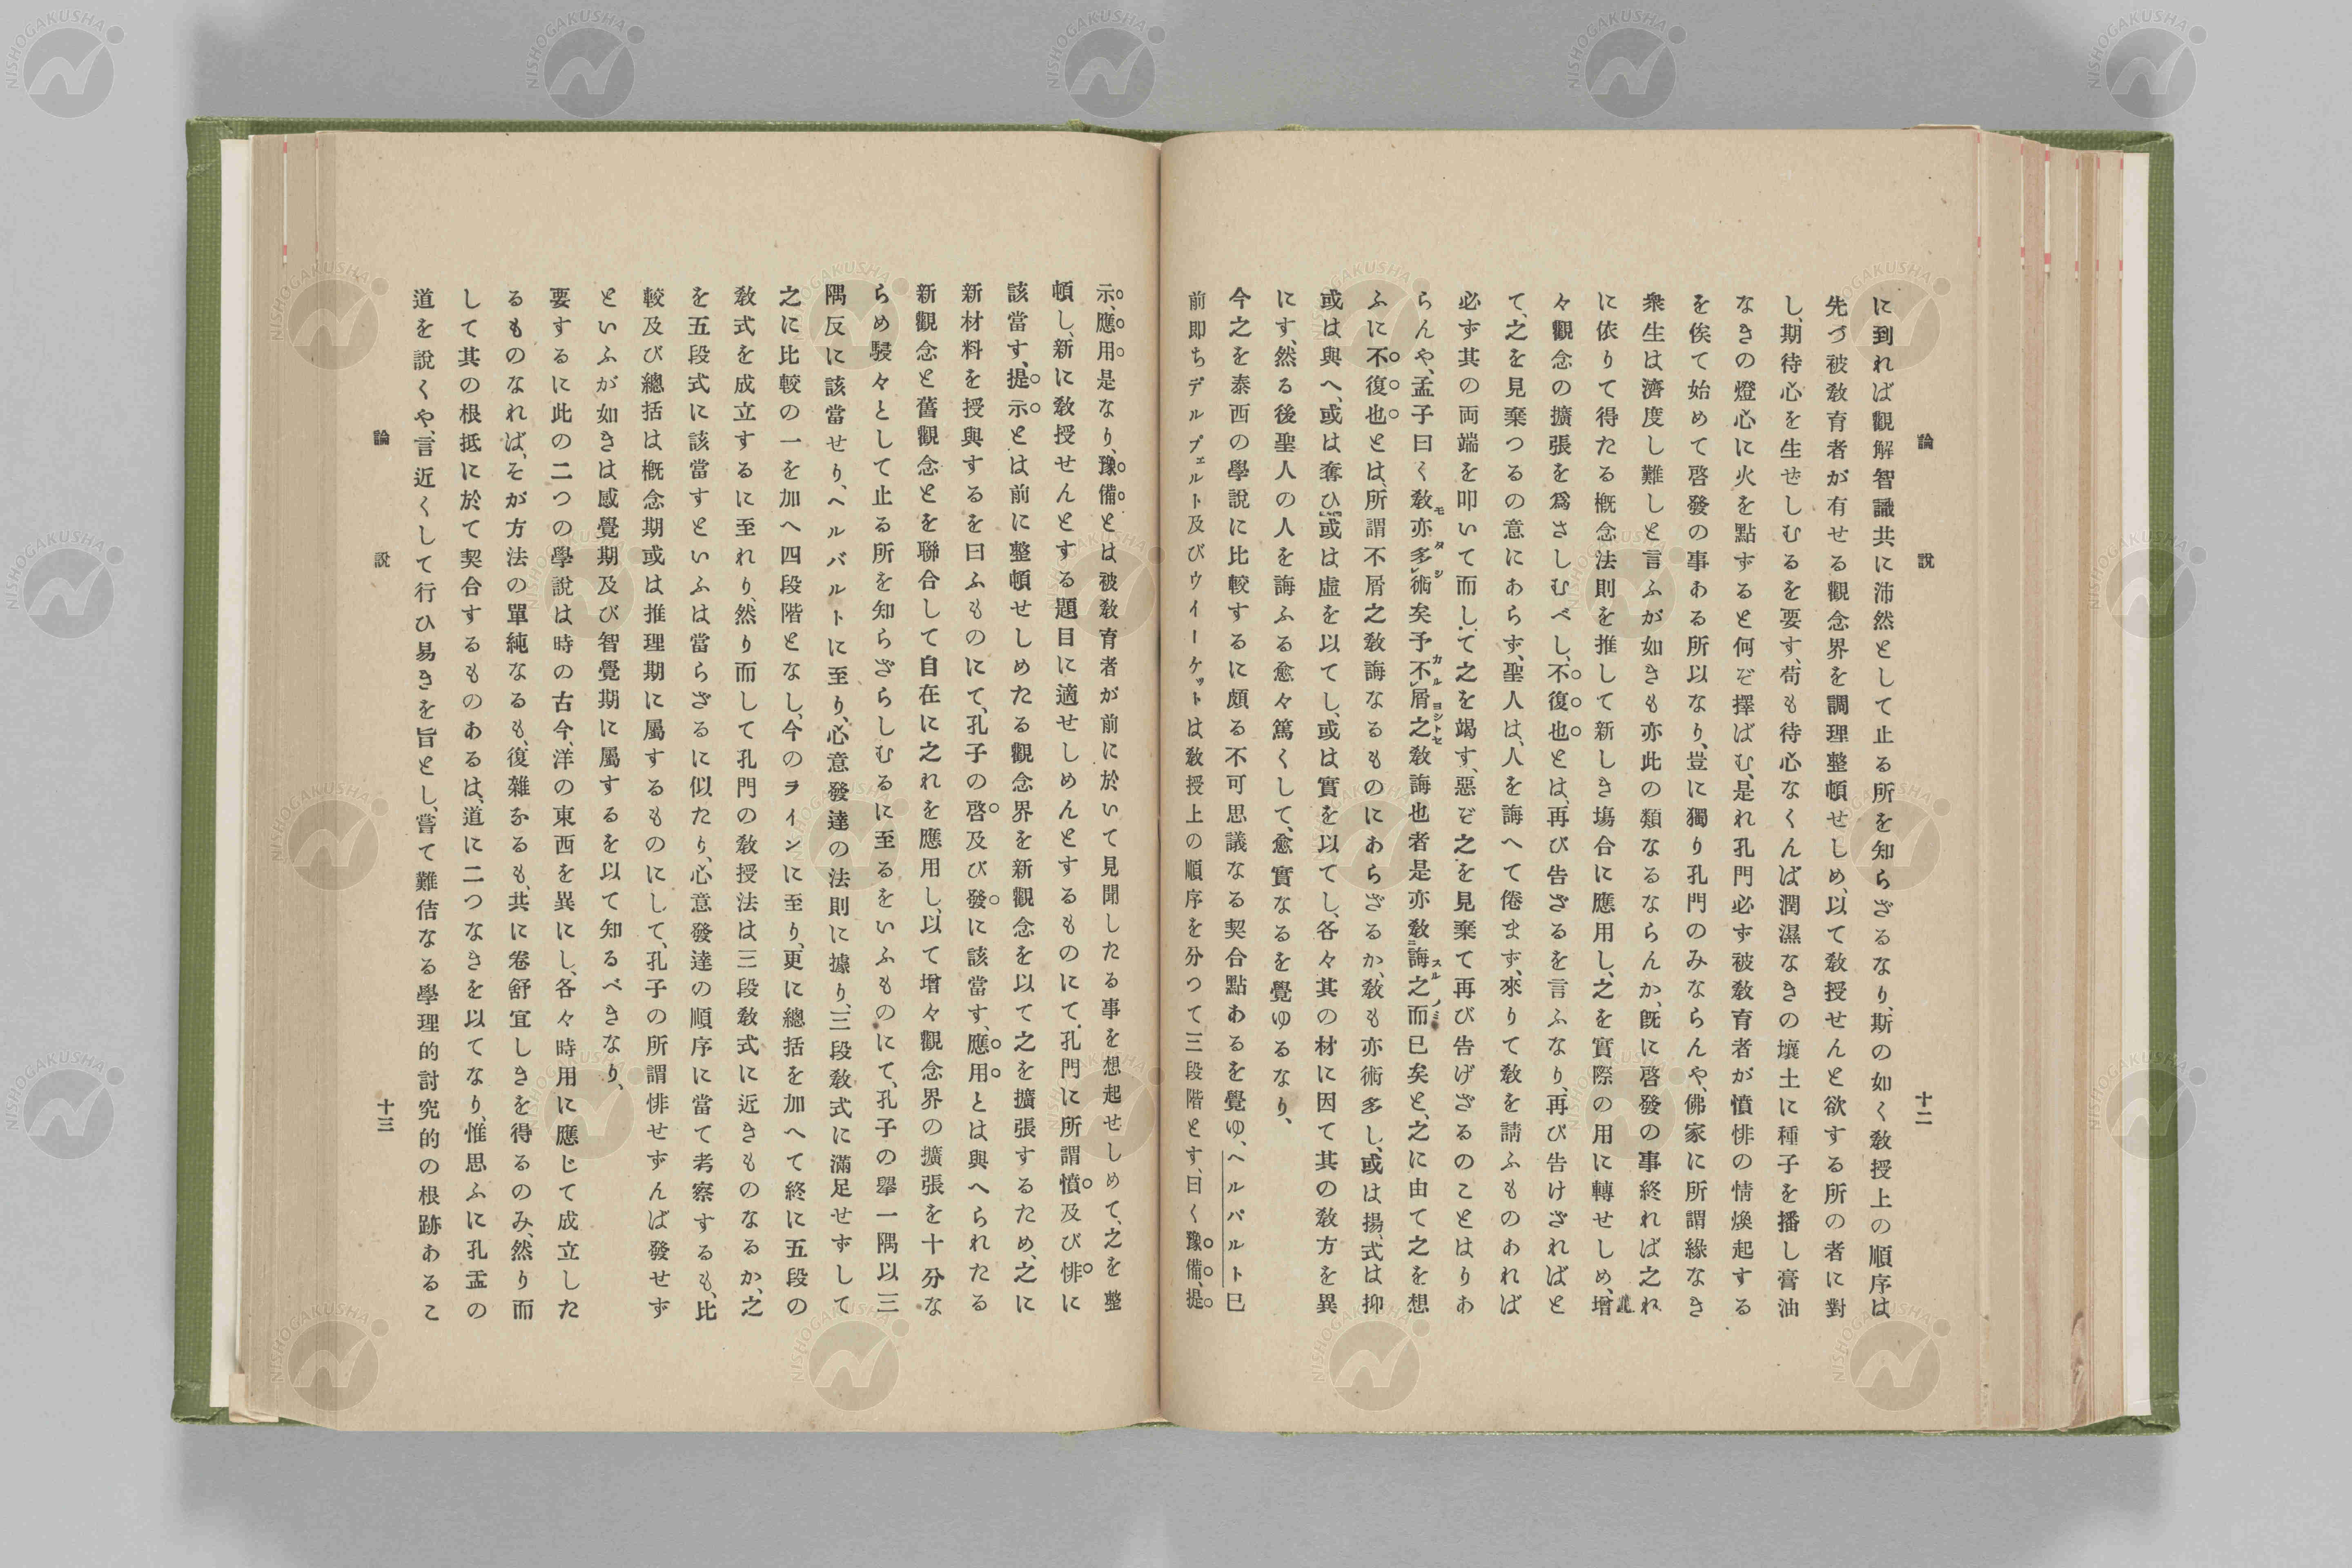 論說
十二
に到れば觀解智識共に沛然として止る所を知らざるなり、斯の如く敎授上の順序は
先づ被敎育者が有せる觀念界を調理整頓せしめ、以て敎授せんと欲する所の者に對
し、期待心を生せしむるを要す、苟も待心なくんば潤濕なきの壤土に種子を播し膏油
なきの燈心に火を點ずると何ぞ擇ばむ、是れ孔門必ず被敎育者が憤悱の情煥起する
を俟て始めて啓發の事ある所以なり、豈に獨り孔門のみならんや、佛家に所謂緣なき
衆生は濟度し難しと言ふが如きも亦此の類なるならんか、旣に啓發の事終れば之れ
に依りて得たる槪念法則を推して新しき塲合に應用し、之を實際の用に轉せしめ、增
々觀念の擴張を爲さしむべし、不復也とは、再び告ざるを言ふなり、再び告けざればと
て、之を見棄つるの意にあらず、聖人は、人を誨へて倦まず、來りて敎を請ふものあれば
必ず其の両端を叩いて而して之を竭す、惡ぞ之を見棄て再び告げざるのことはりあ
らんや、孟子曰く敎亦多術矣予不屑之敎誨也者是亦敎誨之而已矣と、之に由て之を想
ふに不復也とは、所謂不屑之敎誨なるものにあらざるか、敎も亦術多し、或は揚、式は抑
或は與へ、或は奪ひ、或は虛を以てし、或は實を以てし、各々其の材に因て其の敎方を異
にす、然る後聖人の人を誨ふる愈々篤くして、愈實なるを覺ゆるなり、
今之を泰西の學說に比較するに頗る不可思議なる契合點あるを覺ゆ、ヘルバルト已
前卽ちデルプェルト及びウイーケットは敎授上の順序を分つて三段階とす、曰く豫備、提
示、應用是なり、豫備とは被敎育者が前に於いて見聞したる事を想起せしめて、之を整
頓し、新に敎授せんとする題目に適せしめんとするものにて、孔門に所謂憤及び悱に
該當す、提示とは前に整頓せしめたる觀念界を新觀念を以て之を擴張するため、之に
新材料を授與するを曰ふものにて、孔子の啓及び發に該當す、應用とは與へられたる
新觀念と舊觀念とを聯合して自在に之れを應用し、以て增々觀念界の擴張を十分な
らめ駸々として止る所を知らざらしむるに至るをいふものにて、孔子の擧一隅以三
隅反に該當せり、ヘルバルトに至り、心意發達の法則に據り、三段敎式に滿足せずして
之に比較の一を加へ四段階となし、今のライン に至り、更に總括を加へて終に五段の
敎式を成立するに至れり、然り而して孔門の敎授法は三段敎式に近きものなるか、之
を五段式に該當すといふは當らざるに似たり、心意發達の順序に當て考察するも、比
較及び總括は槪念期或は推理期に屬するものにして、孔子の所謂悱せずんば發せず
といふが如きは感覺期及び智覺期に屬するを以て知るべきなり、
要するに此の二つの學說は時の古今、洋の東西を異にし、各々時用に應じて成立した
るものなれば、そが方法の單純なるも、復雜なるも、共に卷舒宜しきを得るのみ、然り而
して其の根抵に於て契合するものあるは、道に二つなきを以てなり、惟思ふに孔孟の
道を說くや、言近くして行ひ易きを旨とし、嘗て難佶なる學理的討究的の根跡あるこ
論說
十三